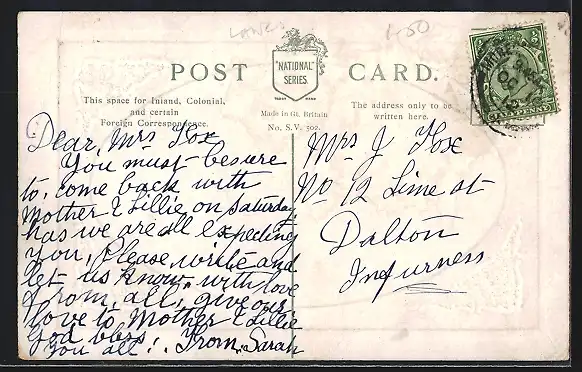 LANCS
1-50
POST CARD.
"NATIONAL"
SERIES.
This space for Inland, Colonial,
and certain
Foreign Correspondence.
Made in Gt. Britain
No. S.V. 502.
The address only to be
written here.
Dear, Mrs Fox
You must besure
to, come back with
Mother & Lillie on Saturday,
has we are all expecting
you, Please write and
let us know, with love
from, all, give our
love to Mother & Lillie
God bless
you all. From, Sarah
Mrs J Fox
No 12 Lime st
Dalton
Infurness